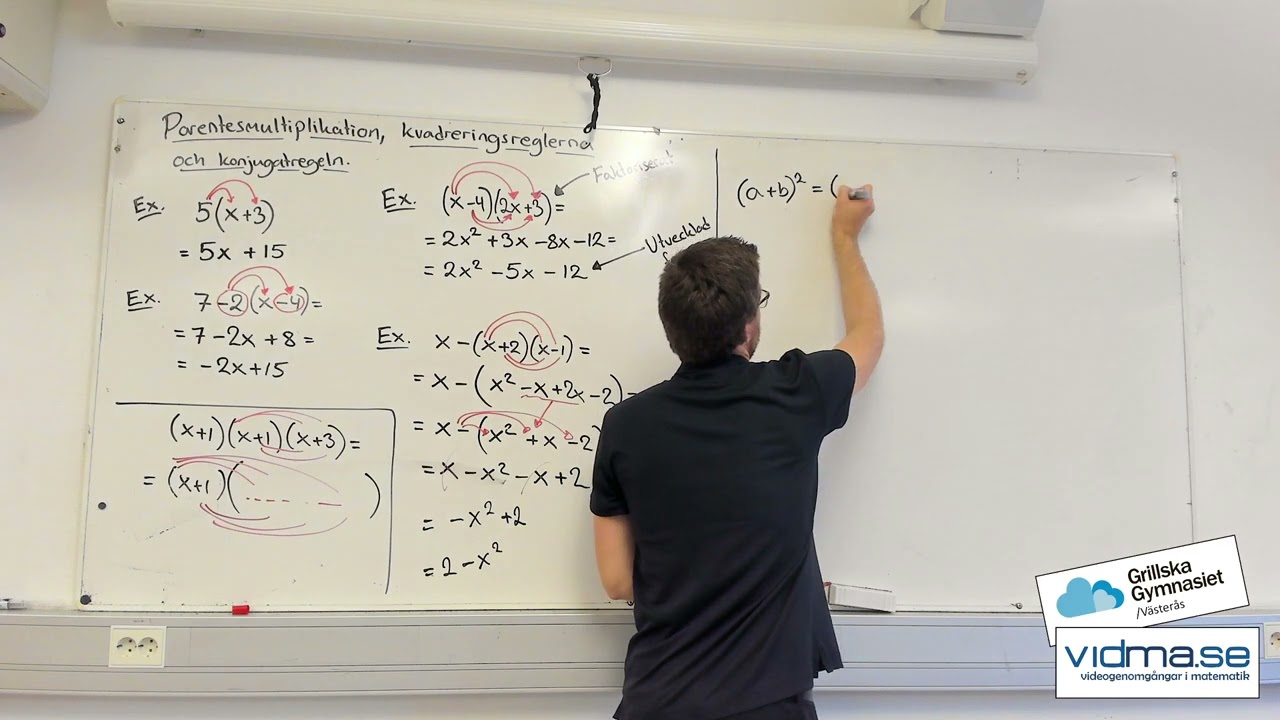 Parentesmultiplikation, kvadreringsreglerna
och konjugatregeln.
Ex. 5(x+3)
= 5x + 15
Ex. 7-2(x-4)=
= 7-2x+8=
= -2x+15
(x+1)(x+1)(x+3)=
= (x+1)( )
Ex. (x-4)(2x+3)=
= 2x² + 3x - 8x - 12 =
= 2x² - 5x - 12
Faktoriserat
Utvecklad
Ex. x-(x+2)(x-1)=
= x-(x²-x+2x-2)=
= x-(x²+x-2)
= x-x²-x+2
= -x²+2
= 2-x²
(a+b)² = (
Grillska
Gymnasiet
/Västerås
vidma.se
videogenomgångar i matematik